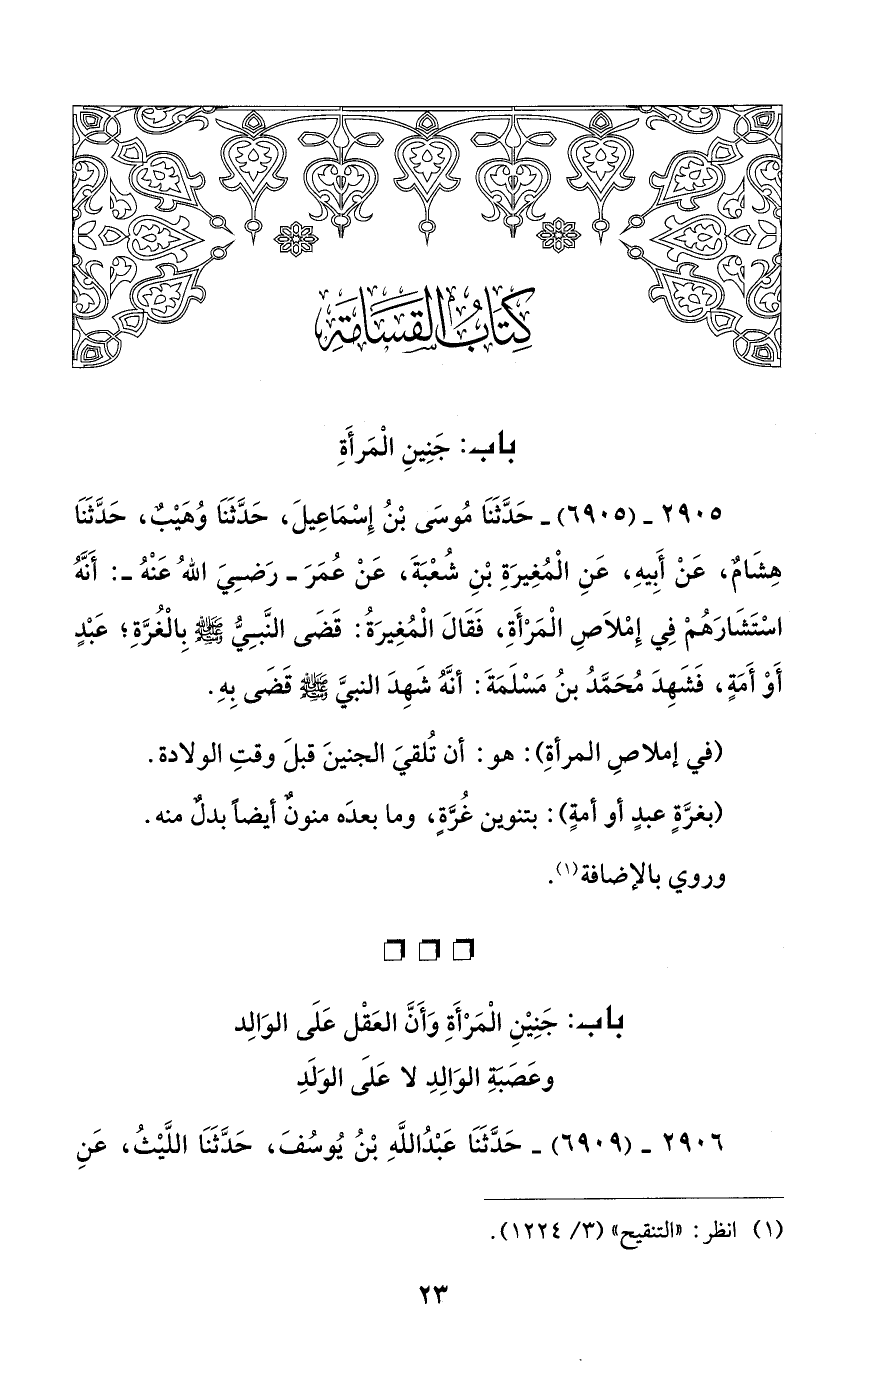 كِتَابُ القَسَامَةِ
باب: جَنِينِ الْمَرأَةِ
٢٩٠٥ ـ (٦٩٠٥) ـ حَدَّثَنَا مُوسَى بْنُ إِسْمَاعِيلَ، حَدَّثَنَا وُهَيْبٌ، حَدَّثَنَا
هِشَامٌ، عَنْ أَبِيهِ، عَنِ الْمُغِيرَةِ بْنِ شُعْبَةَ، عَنْ عُمَرَ ـ رَضيَ اللهُ عَنْهُ ـ: أَنَّهُ
اسْتَشَارَهُمْ فِي إِمْلاَصِ الْمَرْأَةِ، فَقَالَ الْمُغِيرَةُ: قَضَى النَّبِيُّ ﷺ بِالْغُرَّةِ؛ عَبْدٍ
أَوْ أَمَةٍ، فَشَهِدَ مُحَمَّدُ بنُ مَسْلَمَةَ: أنَّهُ شَهِدَ النبيَّ ﷺ قَضَى بِهِ.
(في إملاصِ المرأةِ): هو: أن تُلقيَ الجنينَ قبلَ وقتِ الولادة.
(بغرَّةٍ عبدٍ أو أمةٍ): بتنوين غُرَّةٍ، وما بعدَه منونٌ أيضاً بدلٌ منه.
وروي بالإضافة(١).
باب: جَنِيْنِ الْمَرْأَةِ وَأَنَّ العَقْل عَلَى الوَالِد
وعَصَبَةِ الوَالِدِ لا عَلَى الوَلَدِ
٢٩٠٦ ـ (٦٩٠٩) ـ حَدَّثَنَا عَبْدُاللَّهِ بْنُ يُوسُفَ، حَدَّثَنَا اللَّيْثُ، عَنِ
(١) انظر: «التنقيح» (٣/ ١٢٢٤).
٢٣